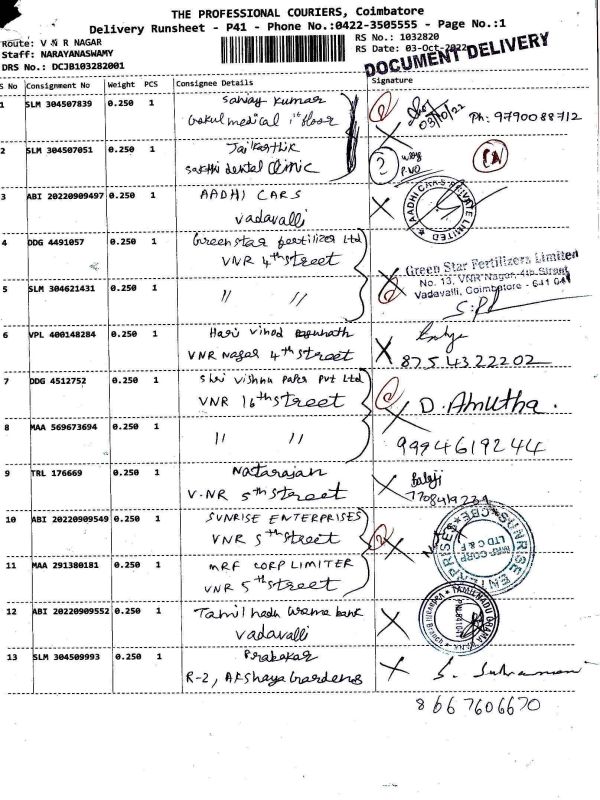 THE PROFESSIONAL COURIERS, Coimbatore
Delivery Runsheet - P41 - Phone No.:0422-3505555 - Page No.:1
Route: V N R NAGAR
Staff: NARAYANASWAMY
DRS No.: DCJB103282001
RS No.: 1032820
RS Date: 03-Oct-2022
DOCUMENT DELIVERY
S No Consignment No Weight PCS Consignee Details Signature
1 SLM 304507839 0.250 1 Sanjay Kumar
Gokul medical 1st floor
03/10/22 Ph: 9790088712
2 SLM 304507051 0.250 1 Jai Karthik
Sakthi dental Clinic
3 ABI 20220909497 0.250 1 AADHI CARS
Vadavalli
AADHI CARS PRIVATE LIMITED
4 DDG 4491057 0.250 1 Green star fertilizer Ltd
VNR 4th street
Green Star Fertilizers Limited
No. 13, VNR Nagar, 4th Street
Vadavalli, Coimbatore - 641 041
5 SLM 304621431 0.250 1 // //
6 VPL 400148284 0.250 1 Hari Vinod
VNR Nagar 4th street
8754322202
7 DDG 4512752 0.250 1 Shri Vishnu Paper Pvt Ltd
VNR 16th street
D. Amutha.
8 MAA 569673694 0.250 1 // //
9994619244
9 TRL 176669 0.250 1 Natarajan
V.NR 5th street
Balaji
10 ABI 20220909549 0.250 1 SUNRISE ENTERPRISES
VNR 5th street
SUNRISE ENTERPRISES CBE
MRF CORP LTD C & F
11 MAA 291380181 0.250 1 MRF CORP LIMITER
VNR 5th street
12 ABI 20220909552 0.250 1 Tamil nadu Grama bank
Vadavalli
TAMILNADU GRAMA BANK
13 SLM 304509993 0.250 1 Prabakar
R-2, Akshaya Gardens
8667606670